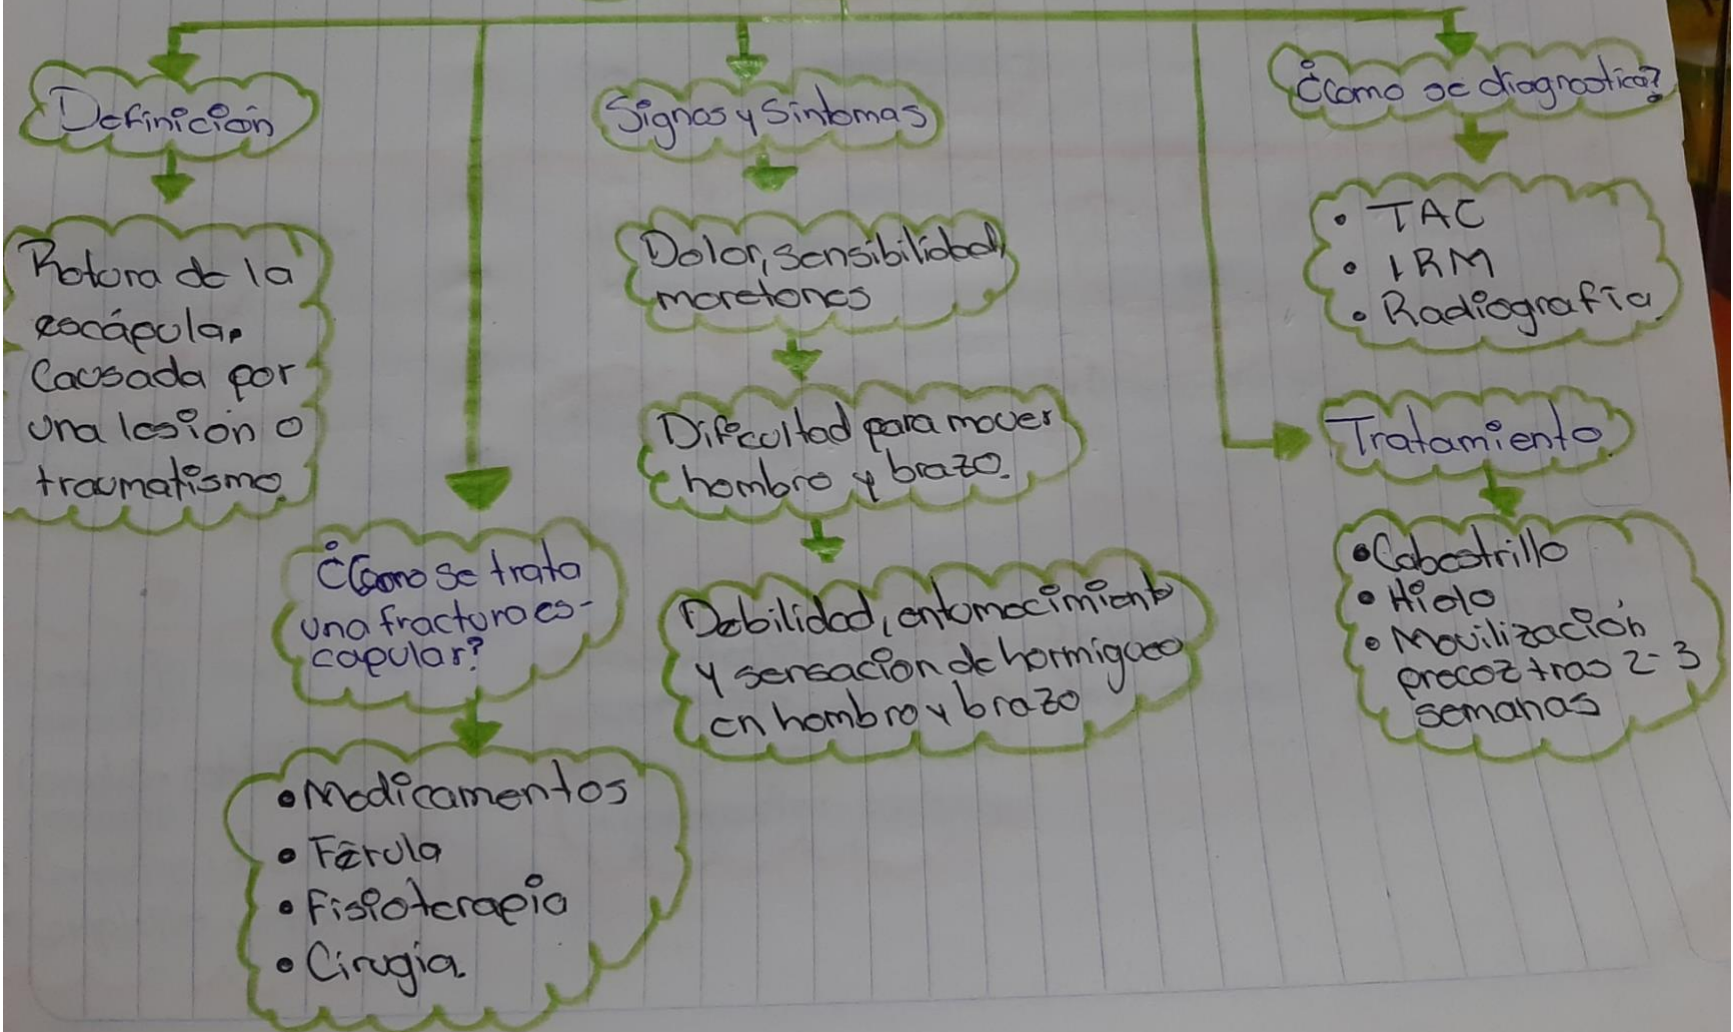 Definición
Rotura de la
escápula,
Causada por
una lesión o
traumatismo.
¿Como se trata
una fractura es-
capular?
• Medicamentos
• Férula
• Fisioterapia
• Cirugía.
Signos y Sintomas
Dolor, sensibilidad,
moretones
Dificultad para mover
hombro y brazo.
Debilidad, entumecimiento
y sensación de hormigueo
en hombro y brazo
¿Como se diagnostica?
• TAC
• IRM
• Radiografía.
Tratamiento
• Cabestrillo
• Hielo
• Movilización
precoz tras 2-3
semanas